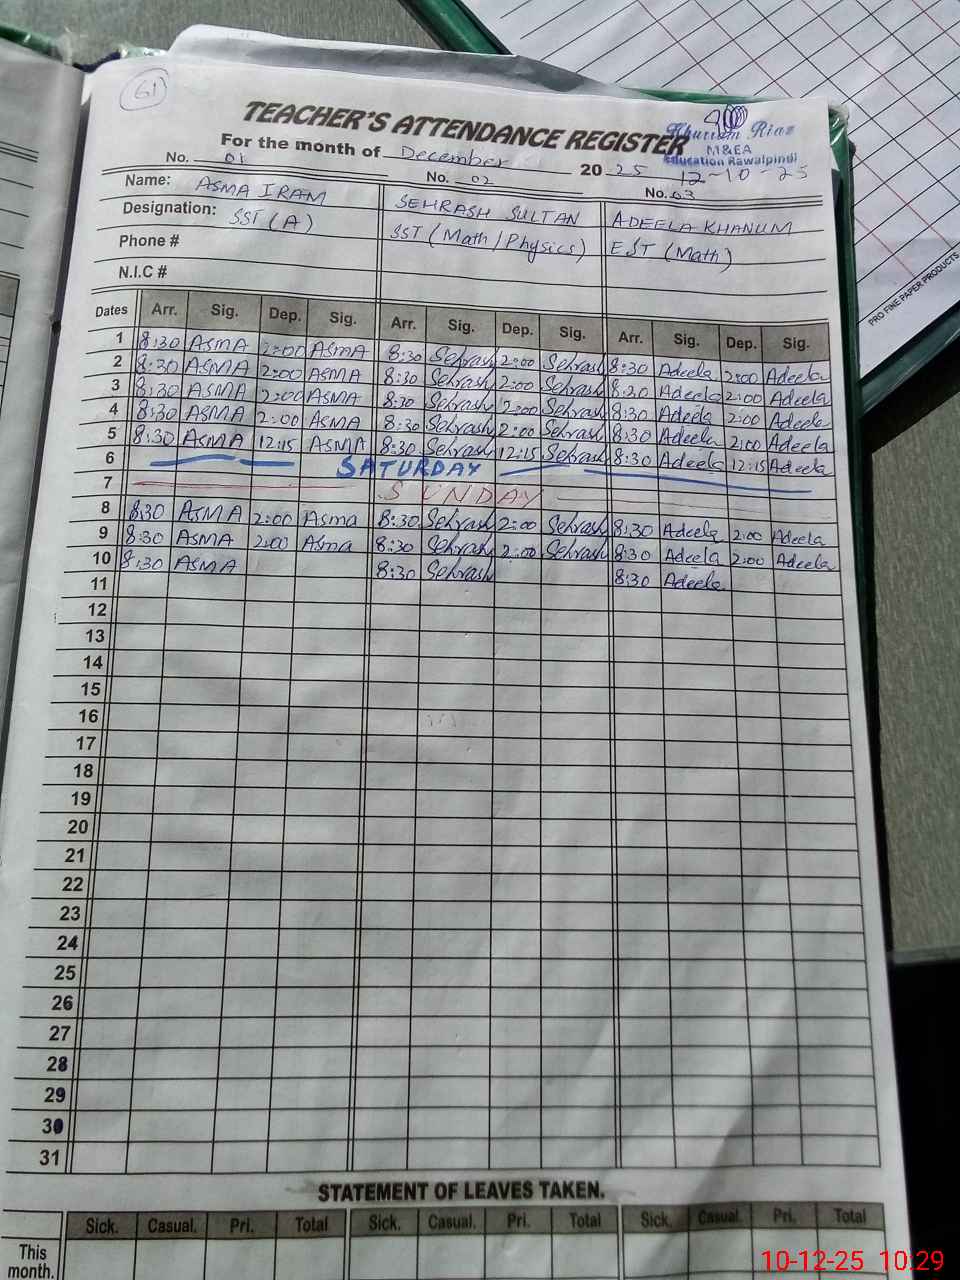 61
TEACHER'S ATTENDANCE REGISTER
Khurram Riaz
M&EA
Education Rawalpindi
12-10-25
For the month of December 2025
No. 01 No. 02 No. 03
Name: ASMA IRAM SEHRASH SULTAN ADEELA KHANUM
Designation: SST (A) SST (Math/Physics) EST (Math)
Phone #
N.I.C #
Dates Arr. Sig. Dep. Sig. Arr. Sig. Dep. Sig. Arr. Sig. Dep. Sig.
1 8:30 ASMA 2:00 ASMA 8:30 Sehrash 2:00 Sehrash 8:30 Adeela 2:00 Adeela
2 8:30 ASMA 2:00 ASMA 8:30 Sehrash 2:00 Sehrash 8:30 Adeela 2:00 Adeela
3 8:30 ASMA 2:00 ASMA 8:30 Sehrash 2:00 Sehrash 8:30 Adeela 2:00 Adeela
4 8:30 ASMA 2:00 ASMA 8:30 Sehrash 2:00 Sehrash 8:30 Adeela 2:00 Adeela
5 8:30 ASMA 12:15 ASMA 8:30 Sehrash 12:15 Sehrash 8:30 Adeela 12:15 Adeela
6 SATURDAY
7 SUNDAY
8 8:30 ASMA 2:00 Asma 8:30 Sehrash 2:00 Sehrash 8:30 Adeela 2:00 Adeela
9 8:30 ASMA 2:00 Asma 8:30 Sehrash 2:00 Sehrash 8:30 Adeela 2:00 Adeela
10 8:30 ASMA 8:30 Sehrash 8:30 Adeela
11
12
13
14
15
16
17
18
19
20
21
22
23
24
25
26
27
28
29
30
31
STATEMENT OF LEAVES TAKEN.
Sick. Casual. Pri. Total Sick. Casual. Pri. Total Sick. Casual. Pri. Total
This
month.
PRO FINE PAPER PRODUCTS
10-12-25 10:29